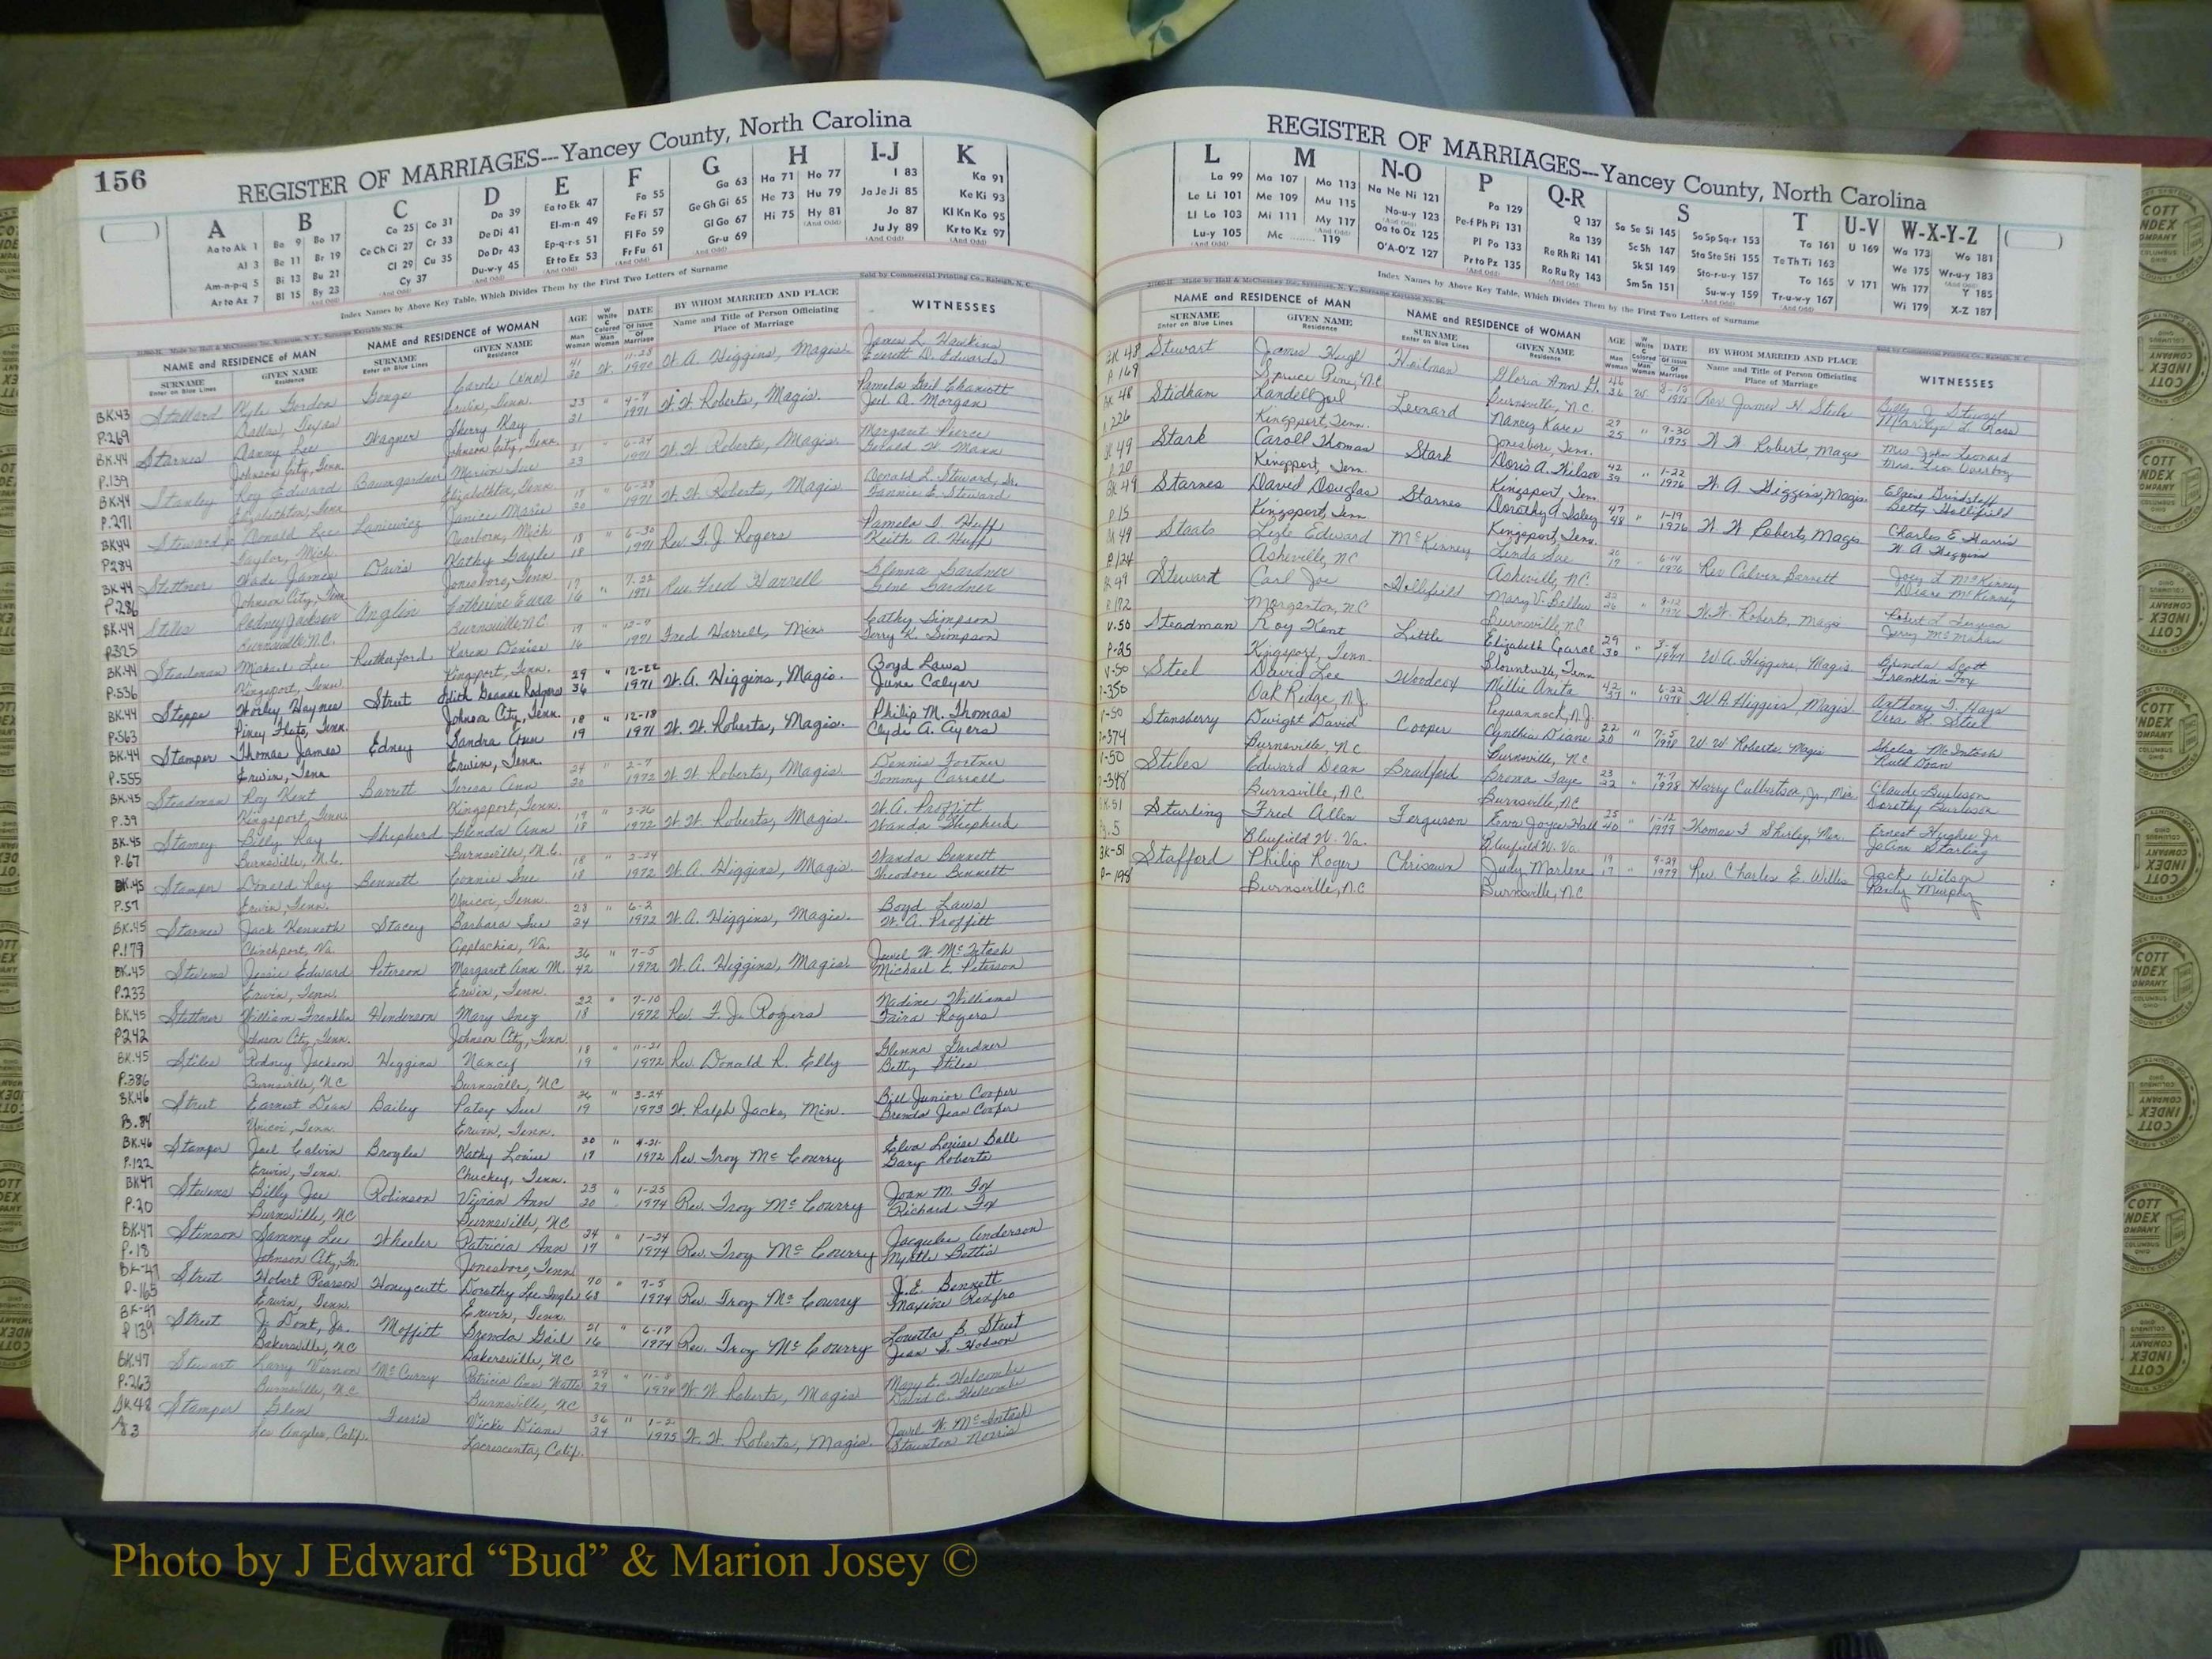 156
REGISTER OF MARRIAGES---Yancey County, North Carolina
A B C D E F G H I-J K
Aa to Ak 1 Ba 9 Bo 17 Ca 25 Co 31 Da 39 Ea to Ek 47 Fa 55 Ga 63 Ha 71 Ho 77 I 83 Ka 91
Al 3 Be 11 Br 19 Ce Ch Ci 27 Cr 33 De Di 41 El-m-n 49 Fe Fi 57 Ge Gh Gi 65 He 73 Hu 79 Ja Je Ji 85 Ke Ki 93
Am-n-p-q 5 Bi 13 Bu 21 Cl 29 Cu 35 Do Dr 43 Ep-q-r-s 51 Fl Fo 59 Gl Go 67 Hi 75 Hy 81 Jo 87 Kl Kn Ko 95
Ar to Az 7 Bl 15 By 23 Cy 37 Du-w-y 45 Et to Ez 53 Fr Fu 61 Gr-u 69 Ju Jy 89 Kr to Kz 97
Index Names by Above Key Table, Which Divides Them by the First Two Letters of Surname
Sold by Commercial Printing Co., Raleigh, N. C.
NAME and RESIDENCE of MAN NAME and RESIDENCE of WOMAN AGE DATE BY WHOM MARRIED AND PLACE WITNESSES
SURNAME Enter on Blue Lines GIVEN NAME Residence SURNAME Enter on Blue Lines GIVEN NAME Residence Man Woman W White C Colored Of Issue Of Marriage Name and Title of Person Officiating Place of Marriage
BK.43 Stallard Kyle Gordon Gouge Carole (Ann) 41 30 W. 11-28 1970 W. A. Higgins, Magis. James L. Hawkins
P.269 Dallas, Texas Erwin, Tenn. Everett D. Edwards
BK.44 Starnes Danny Lee Wagner Sherry Kay 23 21 " 4-7 1971 W. W. Roberts, Magis. Pamela Gail Chariott
P.139 Johnson City, Tenn. Johnson City, Tenn. Joel A. Morgan
BK.44 Stanley Roy Edward Baumgardner Marion Sue 21 23 " 6-24 1971 W. W. Roberts, Magis. Margaret Pierce
P.271 Elizabethton, Tenn Elizabethton, Tenn.
BK44 Steward, Jr. Donald Lee Janice Marie 18 20 " 6-28 1971 W. W. Roberts, Magis. Donald L. Steward, Sr.
P284 Taylor, Mich. Dearborn, Mich Fannie E. Steward
BK.44 Stettner Wade James Davis Kathy Gayle 18 18 " 6-30 1971 Rev. F. J. Rogers Pamela T. Huff
P.286 Johnson City, Tenn. Jonesboro, Tenn Keith A Huff
BK.44 Stiles Rodney Jackson Anglin Catherine Eura 17 16 " 7-22 1971 Rev. Fred Harrell Glenna Gardner
P325 Burnsville N.C. Burnsville NC Gene Gardner
BK.44 Steadman Michael Lee Rutherford Karen Denise 19 16 " 1971 Fred Harrell, Min. Cathy Simpson
P.536 Kingsport, Tenn. Kingsport, Tenn. Terry K. Simpson
BK.44 Stepps Worley Haynes Street Edith Deanne Rodgers 29 36 " 12-22 1971 W. A. Higgins, Magis. Boyd Laws
P.563 Piney Flats, Tenn. Johnson City, Tenn. June Calyer
BK.44 Stamper Thomas James Edney Sandra Ann 18 19 " 12-18 1971 W. W. Roberts, Magis. Philip M. Thomas
P.555 Erwin, Tenn Erwin, Tenn. Clyde A. Ayers
BK.45 Steadman Roy Kent Barrett Teresa Ann 24 20 " 2-7 1972 W. W. Roberts, Magis. Dennis Fortner
P.39 Kingsport, Tenn. Kingsport, Tenn. Tommy Correll
BK.45 Stamey Billy Ray Shepherd Glenda Ann 19 18 " 2-26 1972 W. W. Roberts, Magis. W. A. Proffitt
P.67 Burnsville, N.C. Burnsville, N.C. Wanda Shepherd
BK.45 Stamper Donald Ray Bennett Connie Sue 18 18 " 2-24 1972 W. A. Higgins, Magis. Wanda Bennett
P.57 Erwin, Tenn. Unicoi, Tenn. Theodore Bennett
BK.45 Starnes Jack Kenneth Stacey Barbara Sue 28 24 " 6-2 1972 W. A. Higgins, Magis. Boyd Laws
P.179 Clinchport, Va. Appalachia, Va. W. A. Proffitt
BK.45 Stevens Jessie Edward Peterson Margaret Ann M. 36 42 " 7-5 1972 W. A. Higgins, Magis. Jewel W. McIntosh
P.233 Erwin, Tenn. Erwin, Tenn. Michael E. Peterson
BK.45 Stettner William Franklin Henderson Mary Inez 22 18 " 7-10 1972 Rev. F. J. Rogers Nadine Williams
P242 Johnson City, Tenn. Johnson City, Tenn Faira Rogers
BK.45 Stiles Rodney Jackson Higgins Nancy 18 19 " 11-21 1972 Rev. Donald R. Elly Glenna Gardner
P.386 Burnsville, NC Burnsville, NC Betty Stiles
BK.46 Street Earnest Dean Bailey Patsy Sue 26 19 " 3-24 1973 W. Ralph Jacks, Min. Bill Junior Cooper
P.84 Unicoi, Tenn. Erwin, Tenn. Brenda Jean Cooper
BK.46 Stamper Joel Calvin Broyles Kathy Louise 20 18 " 4-21 1972 Rev. Troy Mc Courry Elva Louise Ball
P.122 Erwin, Tenn. Chuckey, Tenn. Gary Roberts
BK47 Stevens Billy Joe Robinson Vivian Ann 23 20 " 1-25 1974 Rev. Troy Mc Courry Joan M. Fox
P.20 Burnsville, NC Burnsville, NC Richard Fox
BK.47 Stinson Sammy Lee Wheeler Patricia Ann 24 17 " 1-24 1974 Rev. Troy Mc Courry Jacqulee Anderson
P.18 Johnson City, Tn. Jonesboro, Tenn Myrtle Bettis
BK-47 Street Hobert Pearson Honeycutt Dorothy Lee Ingle 70 68 " 7-5 1974 Rev. Troy Mc Courry J. E. Bennett
P-165 Erwin, Tenn. Erwin, Tenn. Maxine Renfro
BK-47 Street J. Dont, Jr. Moffitt Brenda Gail 21 16 " 6-17 1974 Rev. Troy Mc Courry Louetta B. Street
P 139 Bakersville, NC Bakersville, NC Jean S. Hobson
BK.47 Stewart Larry Vernon McCurry Patricia Ann Watts 29 29 " 11-8 1974 W. W. Roberts, Magis Mary E. Holcombe
P.263 Burnsville, N.C. Burnsville, NC David C. Holcombe
BK 48 Stamper Glen Ferris Vicki Diane 36 24 " 1-2 1975 W. W. Roberts, Magis. Jewel W. McIntosh
Pg 3 Los Angeles, Calif. Lacrescenta, Calif. Staunton Norris
REGISTER OF MARRIAGES---Yancey County, North Carolina
L M N-O P Q-R S T U-V W-X-Y-Z
La 99 Ma 107 Mo 113 Na Ne Ni 121 Pa 129 Q 137 Sa Se Si 145 So Sp Sq-r 153 Ta 161 U 169 Wa 173 Wo 181
Le Li 101 Me 109 Mu 115 No-u-y 123 Pe-f Ph Pi 131 Ra 139 Sc Sh 147 Sta Ste Sti 155 Te Th Ti 163 We 175 Wr-u-y 183
Ll Lo 103 Mi 111 My 117 Oa to Oz 125 Pl Po 133 Re Rh Ri 141 Sk Sl 149 Sto-r-u-y 157 To 165 V 171 Wh 177 Y 185
Lu-y 105 Mc 119 O'A-O'Z 127 Pr to Pz 135 Ro Ru Ry 143 Sm Sn 151 Su-w-y 159 Tr-u-w-y 167 Wi 179 X-Z 187
Index Names by Above Key Table, Which Divides Them by the First Two Letters of Surname
NAME and RESIDENCE of MAN NAME and RESIDENCE of WOMAN AGE DATE BY WHOM MARRIED AND PLACE WITNESSES
SURNAME Enter on Blue Lines GIVEN NAME Residence SURNAME Enter on Blue Lines GIVEN NAME Residence Man Woman W White C Colored Of Issue Of Marriage Name and Title of Person Officiating Place of Marriage
BK 48 Stewart James Hugh Heilman Gloria Ann G. 46 36 W 1975 Rev. James H Steele Billy J Stewart
P 169 Spruce Pine, N.C. Burnsville, N.C. Marilyn L. Ross
BK 48 Stidham Randell Joel Leonard Nancy Karen 27 25 " 9-30 1975 W W Roberts, Magis Mrs. John Leonard
226 Kingsport, Tenn. Jonesboro, Tenn.
49 Stark Caroll Thomas Stark Doris A. Wilson 42 39 " 1-22 1976 W. A. Higgins, Magis.
P.20 Kingsport, Tenn. Kingsport, Tenn Betty Hollifield
BK 49 Starnes David Douglas Starnes Dorothy A Isley 47 48 " 1-19 1976 W. W Roberts, Magis Charles E. Harris
P 15 Kingsport, Tenn. Kingsport, Tenn. W A Higgins
49 Staats Lizle Edward McKinney Linda Sue 20 17 " 6-14 1976 Rev Calvin Barrett Joey L McKinney
P124 Asheville, NC Asheville, N.C. Diane McKinney
49 Stewart Carl Joe Hollifield Mary V. Ballew 22 26 " 8-12 1976 W. W. Roberts, Magis Robert L Ferguson
172 Morganton, NC Burnsville, NC Jerry McMahan
V.50 Steadman Roy Kent Little Elizabeth Carol 29 30 " 3-4 W A. Higgins, Magis Brenda Scott
P-25 Kingsport, Tenn. Blountville, Tenn Franklin Fox
V-50 Steel David Lee Woodcox Millie Anita 42 37 " 6-22 1978 W A Higgins, Magis Anthony T. Hays
P-350 Oak Ridge, N.J. Pequannock, N.J. Vera R. Steel
V-50 Stansberry Dwight David Cooper Cynthia Diane 22 20 " 7-5 1978 W. W Roberts Magis Shelia McIntosh
P-374 Burnsville, NC Burnsville, NC Ruth Doan
V-50 Stiles Edward Dean Bradford Broma Faye 23 22 " 7-7 1978 Harry Culbertson, Jr., Min Claude Burleson
P-348 Burnsville, N.C. Burnsville, NC Dorothy Burleson
BK.51 Starling Fred Allen Ferguson Eova Joyce Hall 25 40 " 1-12 1979 Thomas F Shirley, Min. Ernest Hughes Jr
Pg. 5 Bluefield W. Va. Bluefield W. Va JoAnn Starling
BK-51 Stafford Philip Roger Chrisawn Judy Marlene 19 17 " 9-29 1979 Rev. Charles E. Willis Jack Wilson
P-198 Burnsville, N.C Burnsville, N.C Randy Murphy
Photo by J Edward “Bud” & Marion Josey ©